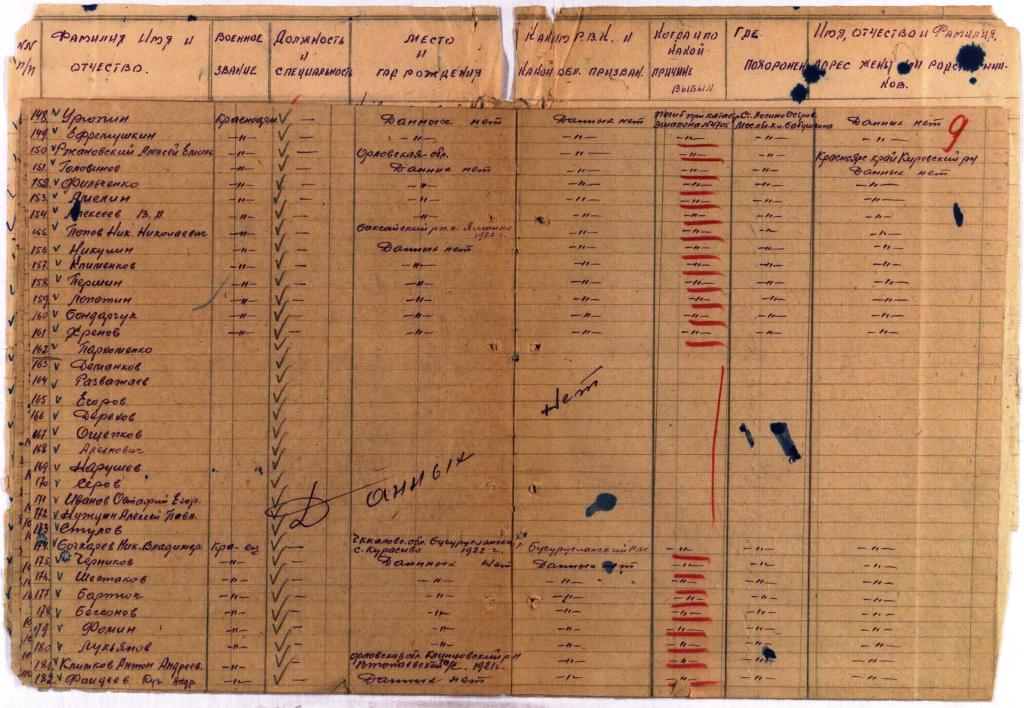 NN п/п Фамилия Имя и отчество. Военное звание Должность и специальность Место и год рождения Каким Р.В.К. и какой обл. призван. Когда и по какой причине выбыл Где похоронен Имя, отчество и Фамилия, адрес жены или родственников.
148 v Урюпин Красноарм. — Данных нет Данных нет Погиб при катастр. эшелона N 4705 Ст. Лосино Остров. Моской к.л. Бабушкина Данных нет 9
149 v Ефремушкин —"— — —"— —"— —"— —"— —"—
150 v Ржановский Алексей —"— — Орловская обл. —"— —"— —"— Краснояр. край Кировский рн
151. v Головинов —"— — Данных нет —"— —"— —"— Данных нет
152. v Фильченко —"— — —"— —"— —"— —"— —"—
153. v Амелин —"— — —"— —"— —"— —"— —"—
154. Алексеев В. А. —"— — —"— —"— —"— —"—
155 v Попов Ник. Николаевич —"— — 1922 г. —"— —"— —"— —"—
156 v Никушин —"— — Данных нет —"— —"— —"— —"—
157. v Клименков —"— — —"— —"— —"— —"— —"—
158 v Першин —"— — —"— —"— —"— —"— —"—
159 v Лопатин —"— — —"— —"— —"— —"— —"—
160 v Бондарчук —"— — —"— —"— —"— —"— —"—
161 v Хренов —"— — —"— —"— —"— —"— —"—
162 Пархоменко
163 v Деманков
164 v Разважаев
165 v Егоров
166 v Дерехов
167 v Ощепков
168 v Алехнович
169 v Нарушев
170 v Серов
171 v Иванов Остафий Егор.
172 v Нуждин Алексей Павл.
173 v Стулов
Данных нет
174 Бочкарев Ник. Владимир. Кра-ец — Чкаловс. обл. Бугурусланск с. Курасиво 1922 г. Бугурусланский Рвк —"— —"— —"—
175 v Черников —"— — Данных нет Данных нет —"— —"— —"—
176. v Шестаков —"— — —"— —"— —"— —"— —"—
177 v Бартюк —"— — —"— —"— —"— —"— —"—
178 v Бессонов —"— — —"— —"— —"— —"— —"—
179 v Фомин —"— — —"— —"— —"— —"— —"—
180 v Лукьянов —"— — —"— —"— —"— —"— —"—
181 v Климков Антон Андреев. —"— — Орловская обл. Клинцовский р-н 1921 г. —"— —"— —"— —"—
182 v Фандеев Андр. —"— — Данных нет —"— —"— —"— —"—